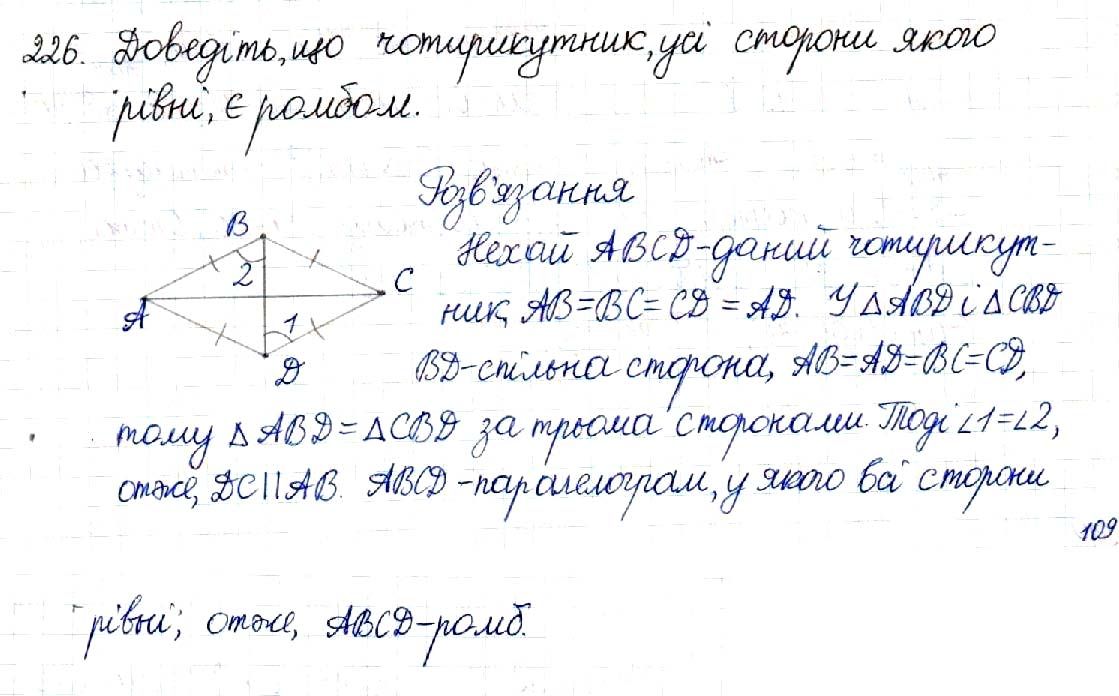 226. Доведіть, що чотирикутник, усі сторони якого
рівні, є ромбом.
Розв'язання
B
2
A
C
1
D
Нехай ABCD-даний чотирикут-
ник, AB=BC=CD=AD. У △ABD і △CBD
BD-спільна сторона, AB=AD=BC=CD,
тому △ABD=△CBD за трьома сторонами. Тоді ∠1=∠2,
отже, DC||AB. ABCD-паралелограм, у якого всі сторони
109
рівні; отже, ABCD-ромб.